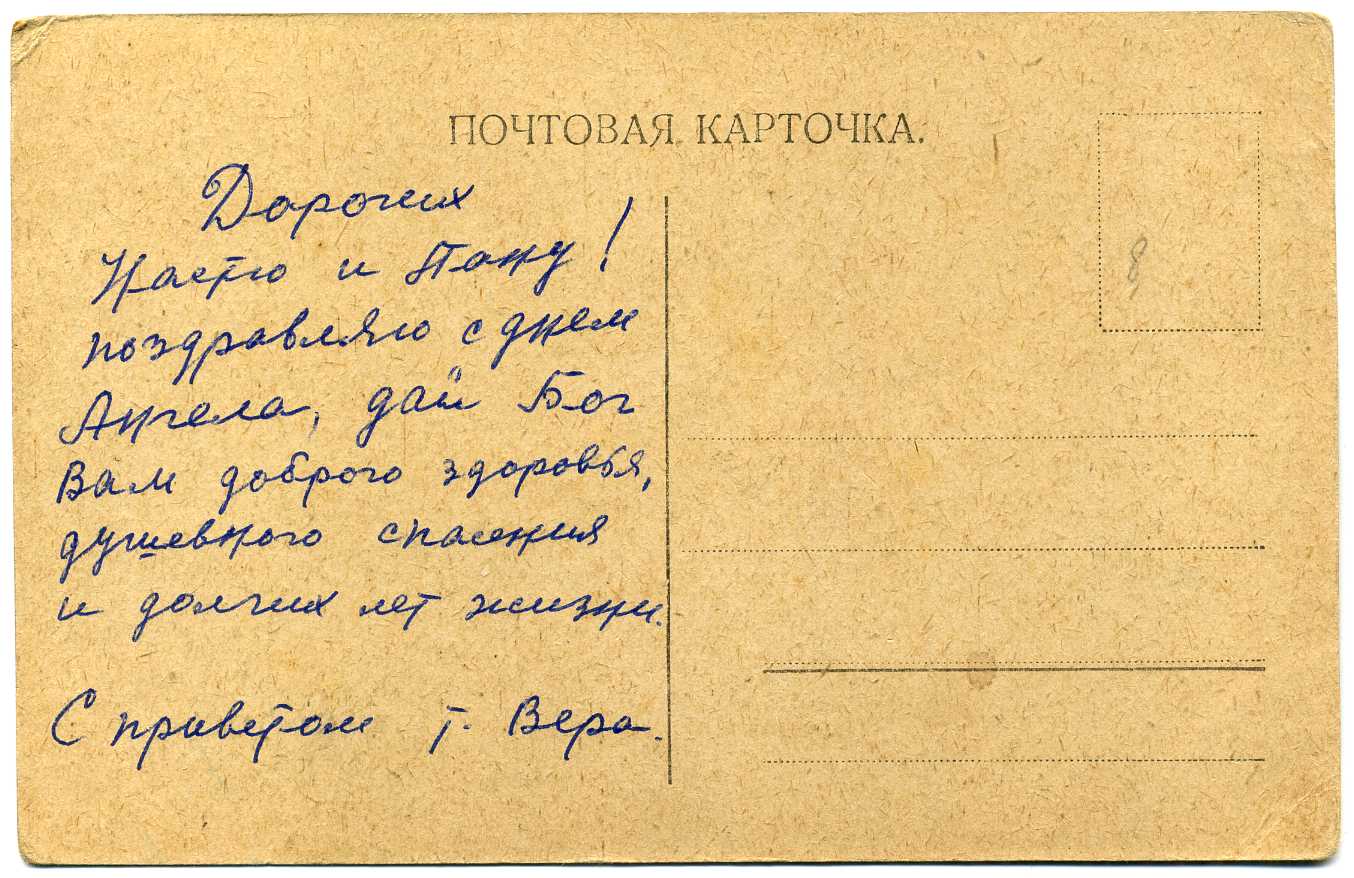 ПОЧТОВАЯ КАРТОЧКА.
Дорогих
Настю и Пану!
поздравляю с днем
Ангела, дай Бог
Вам доброго здоровья,
душевного спасения
и долгих лет жизни.
С приветом т. Вера.
8